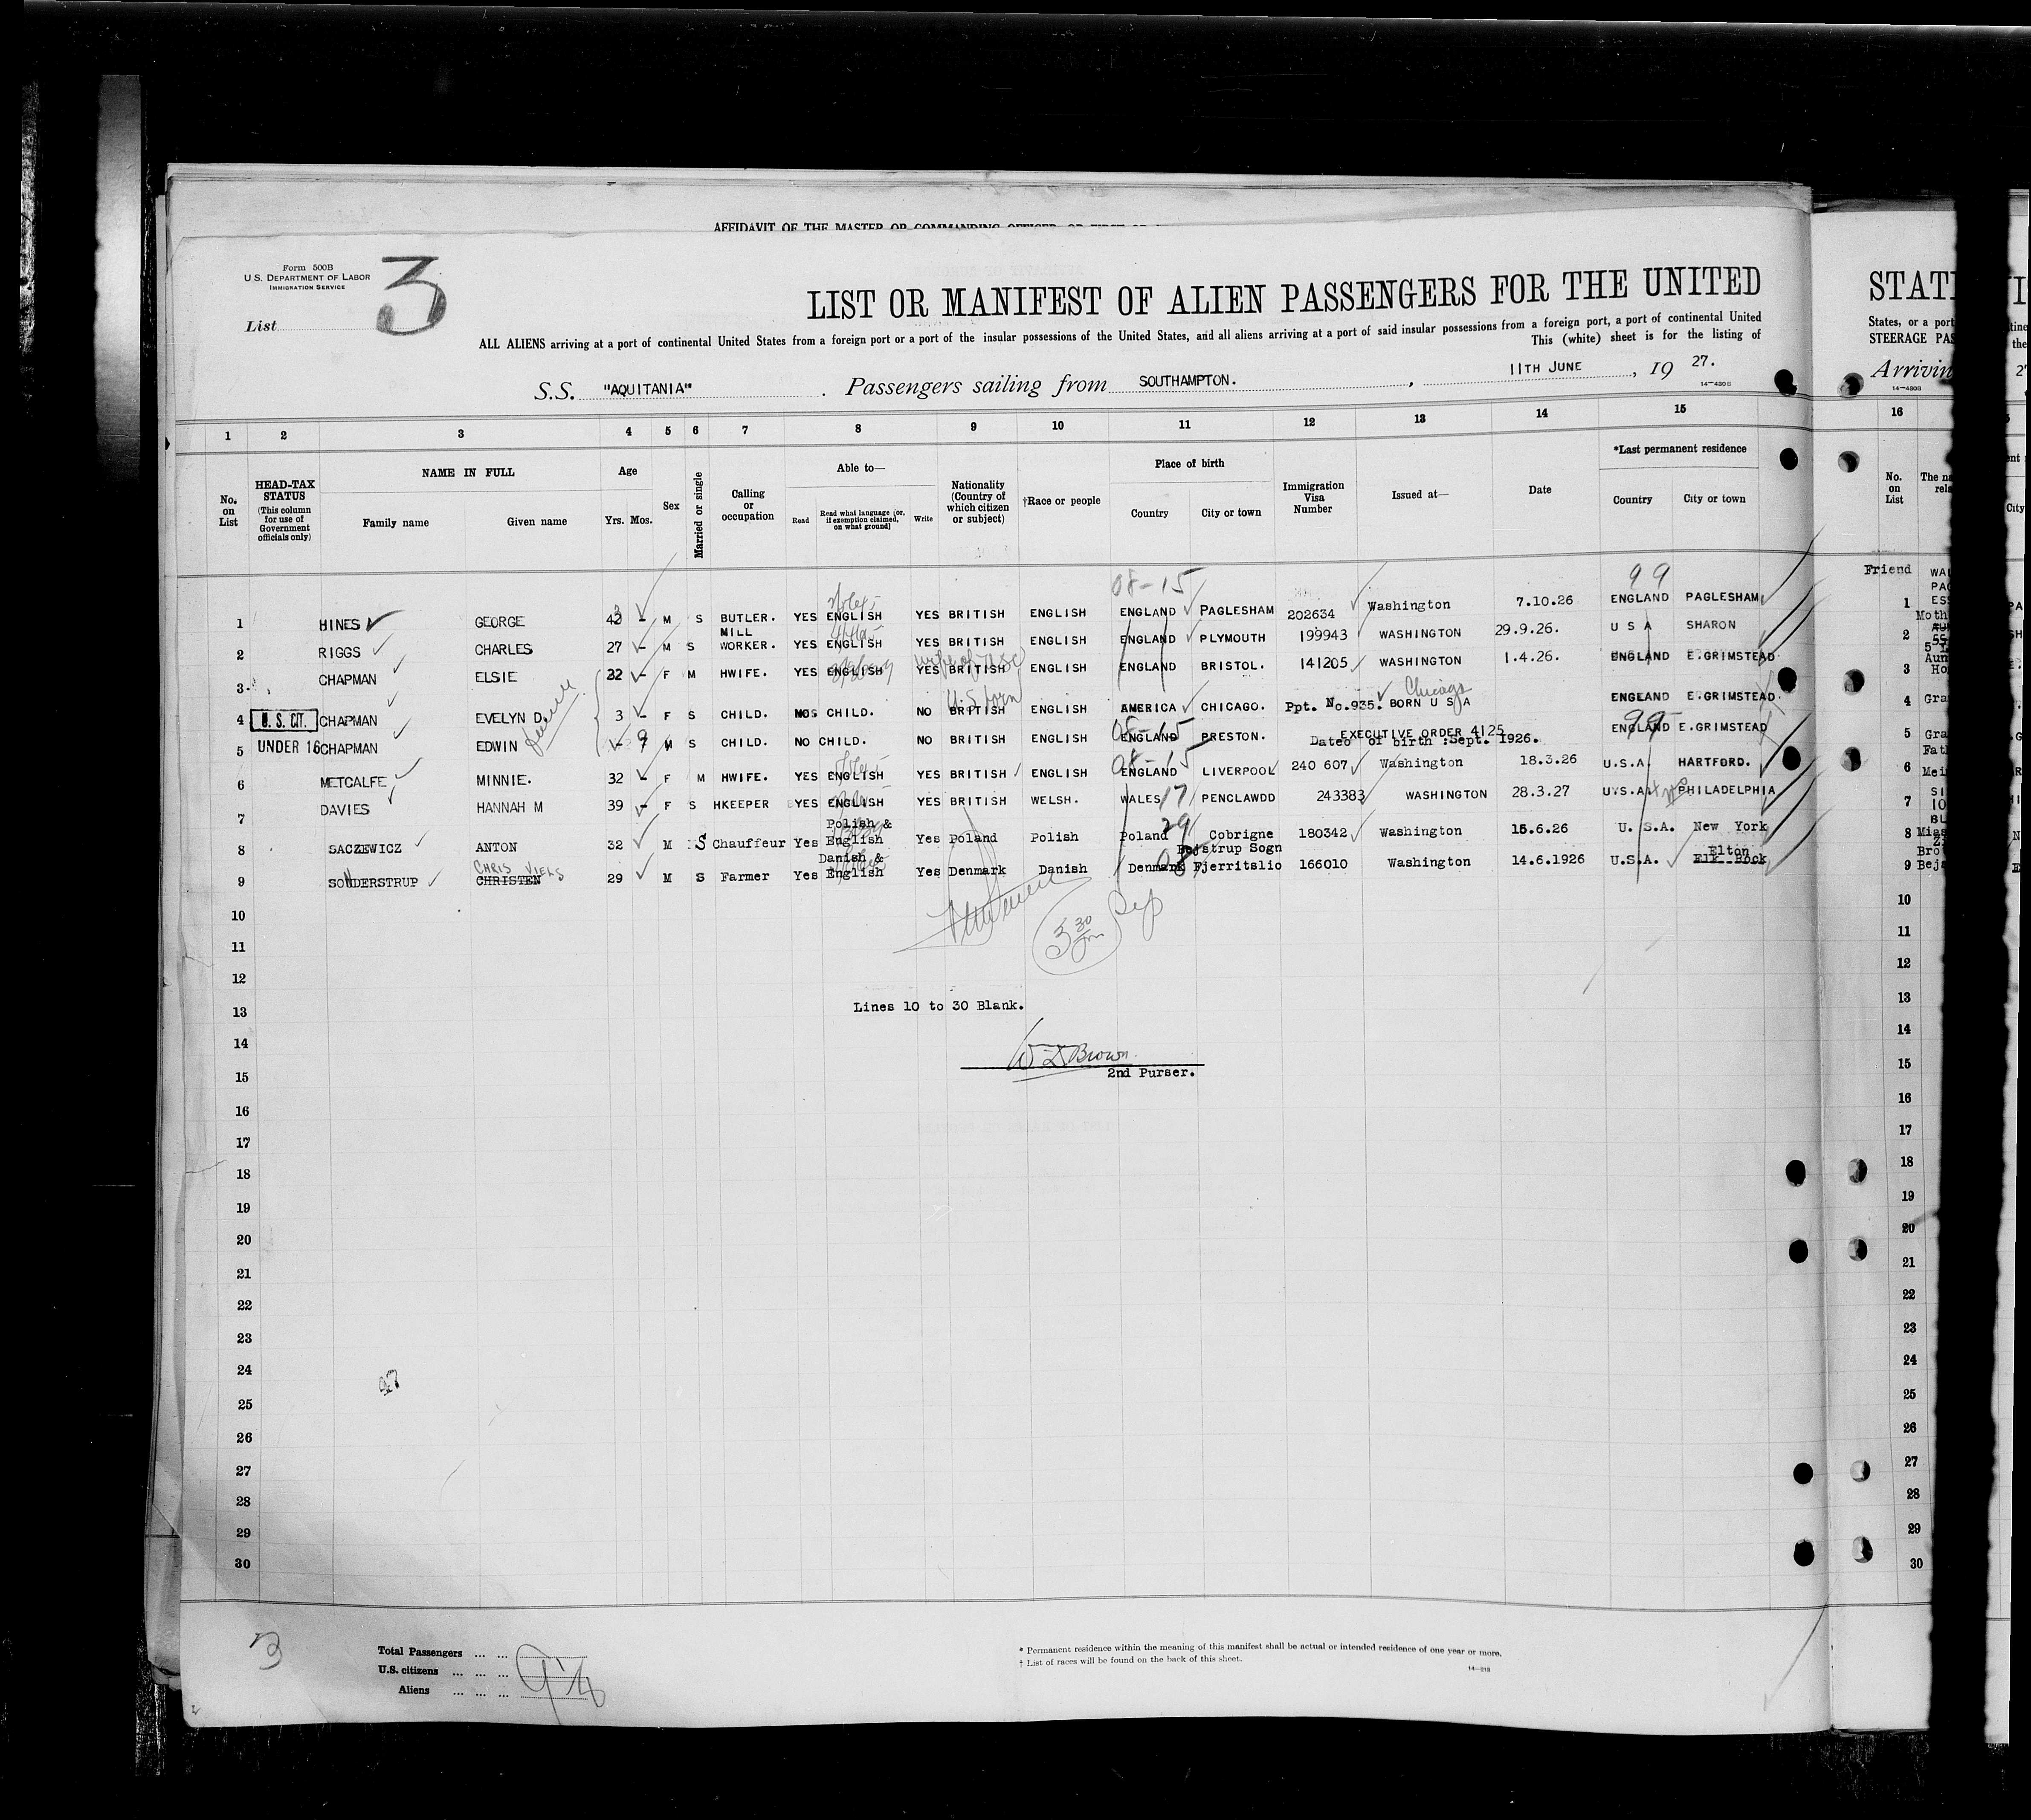 AFFIDAVIT OF THE MASTER OR COMMANDING OFFICER, OR FIRST OR
Form 500B
U.S. DEPARTMENT OF LABOR
IMMIGRATION SERVICE
List 3
LIST OR MANIFEST OF ALIEN PASSENGERS FOR THE UNITED
ALL ALIENS arriving at a port of continental United States from a foreign port or a port of the insular possessions of the United States, and all aliens arriving at a port of said insular possessions from a foreign port, a port of continental United
This (white) sheet is for the listing of
S.S. "AQUITANIA". Passengers sailing from SOUTHAMPTON. , 11TH JUNE , 19 27.
14-430B
1 2 3 4 5 6 7 8 9 10 11 12 13 14 15
No. on List
HEAD-TAX STATUS (This column for use of Government officials only)
NAME IN FULL
Family name Given name
Age
Yrs. Mos.
Sex
Married or single
Calling or occupation
Able to—
Read
Read what language [or, if exemption claimed, on what ground]
Write
Nationality (Country of which citizen or subject)
†Race or people
Place of birth
Country City or town
Immigration Visa Number
Issued at—
Date
*Last permanent residence
Country City or town
08-15 99
1 HINES GEORGE 42 - M S BUTLER. YES ENGLISH YES BRITISH ENGLISH ENGLAND PAGLESHAM 202634 Washington 7.10.26 ENGLAND PAGLESHAM
2 RIGGS CHARLES 27 - M S MILL WORKER. YES ENGLISH YES BRITISH ENGLISH ENGLAND PLYMOUTH 199943 WASHINGTON 29.9.26. U S A SHARON
wife of USC
3 CHAPMAN ELSIE 22 - F M HWIFE. YES ENGLISH YES BRITISH ENGLISH ENGLAND BRISTOL. 141205 WASHINGTON 1.4.26. ENGLAND E.GRIMSTEAD
U.S born Chicago
4 U.S. CIT. CHAPMAN EVELYN D. 3 - F S CHILD. NO CHILD. NO BRITISH ENGLISH AMERICA CHICAGO. Ppt. No.935. BORN U S A ENGLAND E.GRIMSTEAD.
08-15 99
5 UNDER 16 CHAPMAN EDWIN - 9 M S CHILD. NO CHILD. NO BRITISH ENGLISH ENGLAND PRESTON. EXECUTIVE ORDER 4125 Date of birth :Sept. 1926. ENGLAND E.GRIMSTEAD
08-15
6 METCALFE MINNIE. 32 - F M HWIFE. YES ENGLISH YES BRITISH ENGLISH ENGLAND LIVERPOOL 240 607 Washington 18.3.26 U.S.A. HARTFORD.
7 DAVIES HANNAH M 39 - F S HKEEPER YES ENGLISH YES BRITISH WELSH. WALES 17 PENCLAWDD 243383 WASHINGTON 28.3.27 U.S.A. PHILADELPHIA
8 SACZEWICZ ANTON 32 M S Chauffeur Yes Polish & English Yes Poland Polish Poland 29 Cobrigne 180342 Washington 15.6.26 U.S.A. New York
9 SONDERSTRUP CHRISTEN CHRIS VIELS 29 M S Farmer Yes Danish & English Yes Denmark Danish Denmark Bejstrup Sogn Fjerritslio 166010 Washington 14.6.1926 U.S.A. Elk Rock Elton
10
11
3 30 pm
12
13
Lines 10 to 30 Blank.
14
W D Brown
15
2nd Purser.
16
17
18
19
20
21
22
23
24
25
26
27
28
29
30
3
Total Passengers ... ...
U.S. citizens ... ... ...
Aliens ... ... ...
* Permanent residence within the meaning of this manifest shall be actual or intended residence of one year or more.
† List of races will be found on the back of this sheet.
14-318
STAT
States, or a port
STEERAGE PAS
Arrivin
14-430B
16
No. on List
The na
rela
Friend
1
Moth
2
Aun
3 Ho
4 Gra
5 Gra
Fath
6 Mei
7
8 Miss
Bro
9 Beja
10
11
12
13
14
15
16
17
18
19
20
21
22
23
24
25
26
27
28
29
30